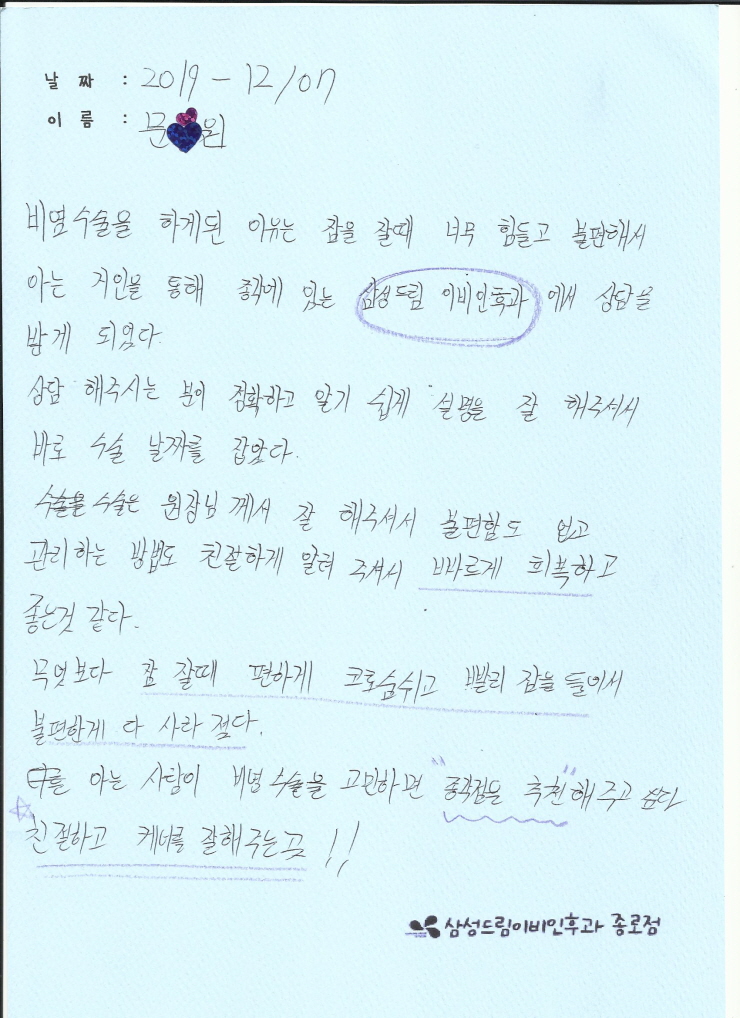 날 짜 : 2019 - 12/07
이 름 : 문 원
비염수술을 하게된 이유는 잠을 잘때 너무 힘들고 불편해서
아는 지인을 통해 종각에 있는 삼성드림 이비인후과 에서 상담을
받게 되었다.
상담 해주시는 분이 정확하고 알기 쉽게 설명을 잘 해주셔서
바로 수술 날짜를 잡았다.
수술은 원장님 께서 잘 해주셔서 불편함도 없고
관리하는 방법도 친절하게 알려 주셔서 빠르게 회복하고
좋는것 같다.
무엇보다 잠 잘때 편하게 코로숨쉬고 빨리 잠을 들어서
불편한게 다 사라 졌다.
를 아는 사람이 비염 수술을 고민하면 "종각점을 추천"해 주고 싶다
친절하고 케어를 잘해주는곳 !!
삼성드림이비인후과 종로점